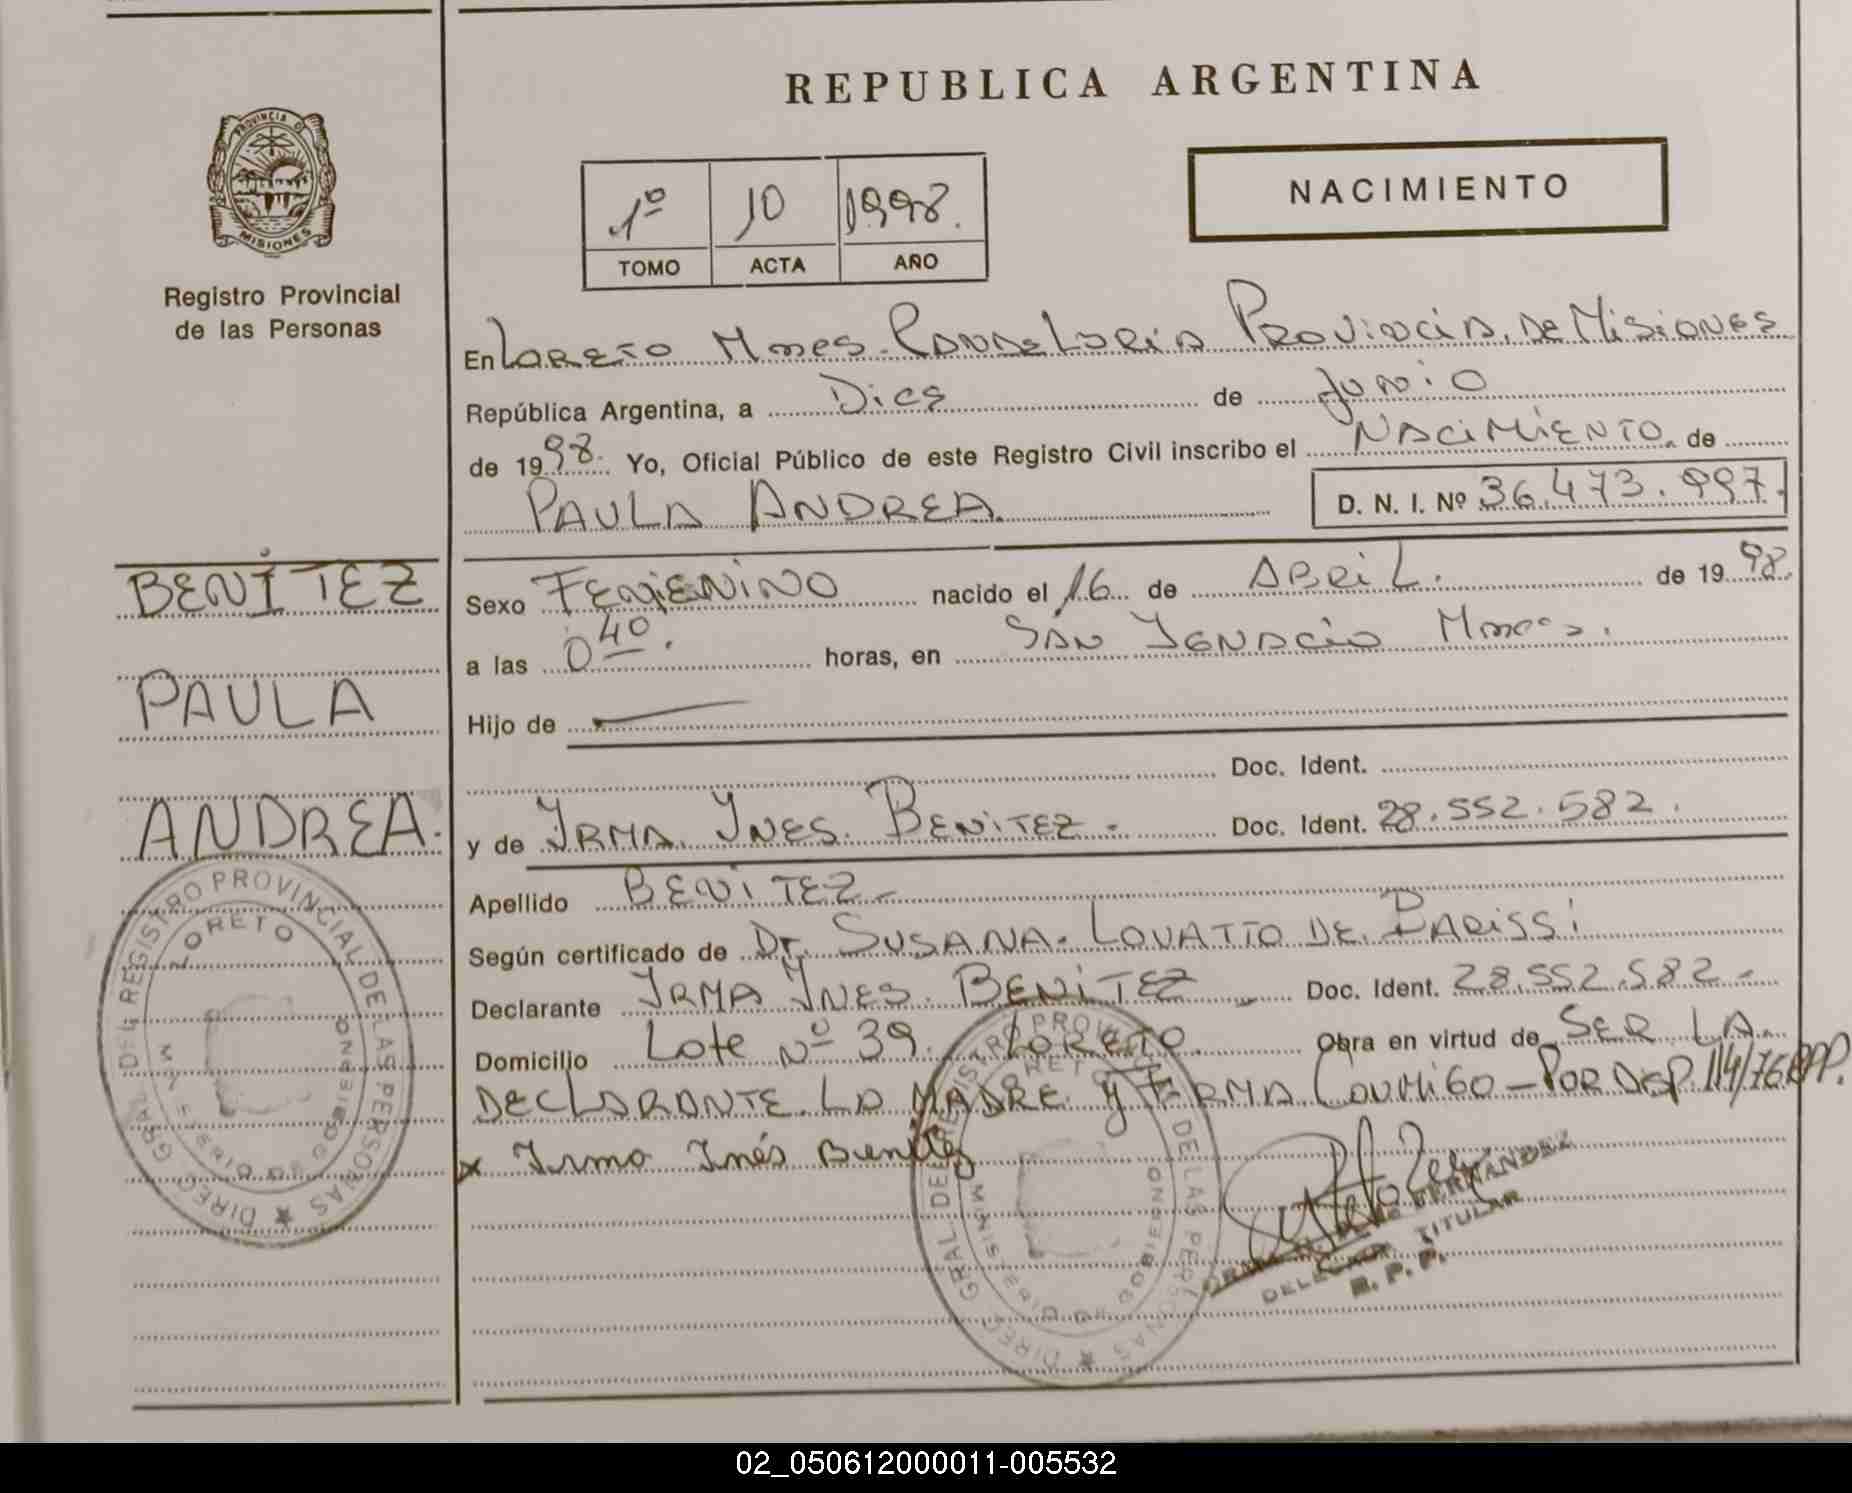 REPUBLICA ARGENTINA
PROVINCIA DE
MISIONES
Registro Provincial
de las Personas
NACIMIENTO
1º 10 1998.
TOMO ACTA AÑO
En Loreto Mnes. Candelaria Provincia de Misiones
República Argentina, a Diez de Junio
de 1998. Yo, Oficial Público de este Registro Civil inscribo el NACIMIENTO de
PAULA ANDREA. D. N. I. Nº 36.473.997.
BENÍTEZ
PAULA
ANDREA.
Sexo FEMENINO nacido el 16 de ABRIL. de 1998.
a las 0 40. horas, en SAN IGNACIO Mnes.
Hijo de
Doc. Ident.
y de IRMA INES BENITEZ. Doc. Ident. 28.552.582.
Apellido BENITEZ-
Según certificado de Dr. SUSANA LOVATTO DE PARISSI
Declarante IRMA INES BENITEZ Doc. Ident. 28.552.582-
Domicilio Lote Nº 39. LORETO Obra en virtud de SER LA
DECLARANTE LA MADRE Y FIRMA CONMIGO-POR DISP. 114/76 RPP.
x Irma Inés Benitez
FERNANDEZ
DELEGADA TITULAR
R. P. P.
DIREC. GRAL. DEL REGISTRO PROVINCIAL DE LAS PERSONAS
LORETO
MINISTERIO DE GOBIERNO
DIREC. GRAL. DEL REGISTRO PROVINCIAL DE LAS PERSONAS
LORETO
MINISTERIO DE GOBIERNO
02_050612000011-005532